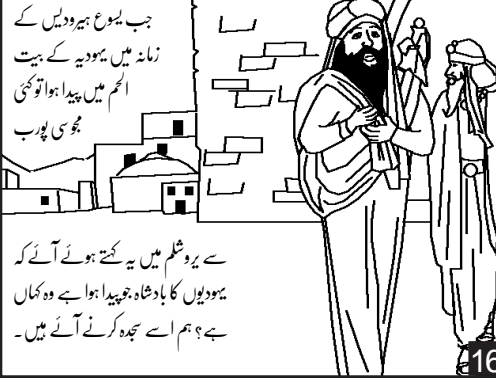 جب یسوع ہیرودیس کے
زمانہ میں یہودیہ کے بیت
الحم میں پیدا ہوا تو کئی
مجوسی پورب
سے یروشلم میں یہ کہتے ہوئے آئے کہ
یہودیوں کا بادشاہ جو پیدا ہوا ہے وہ کہاں
ہے؟ ہم اسے سجدہ کرنے آئے ہیں۔
16